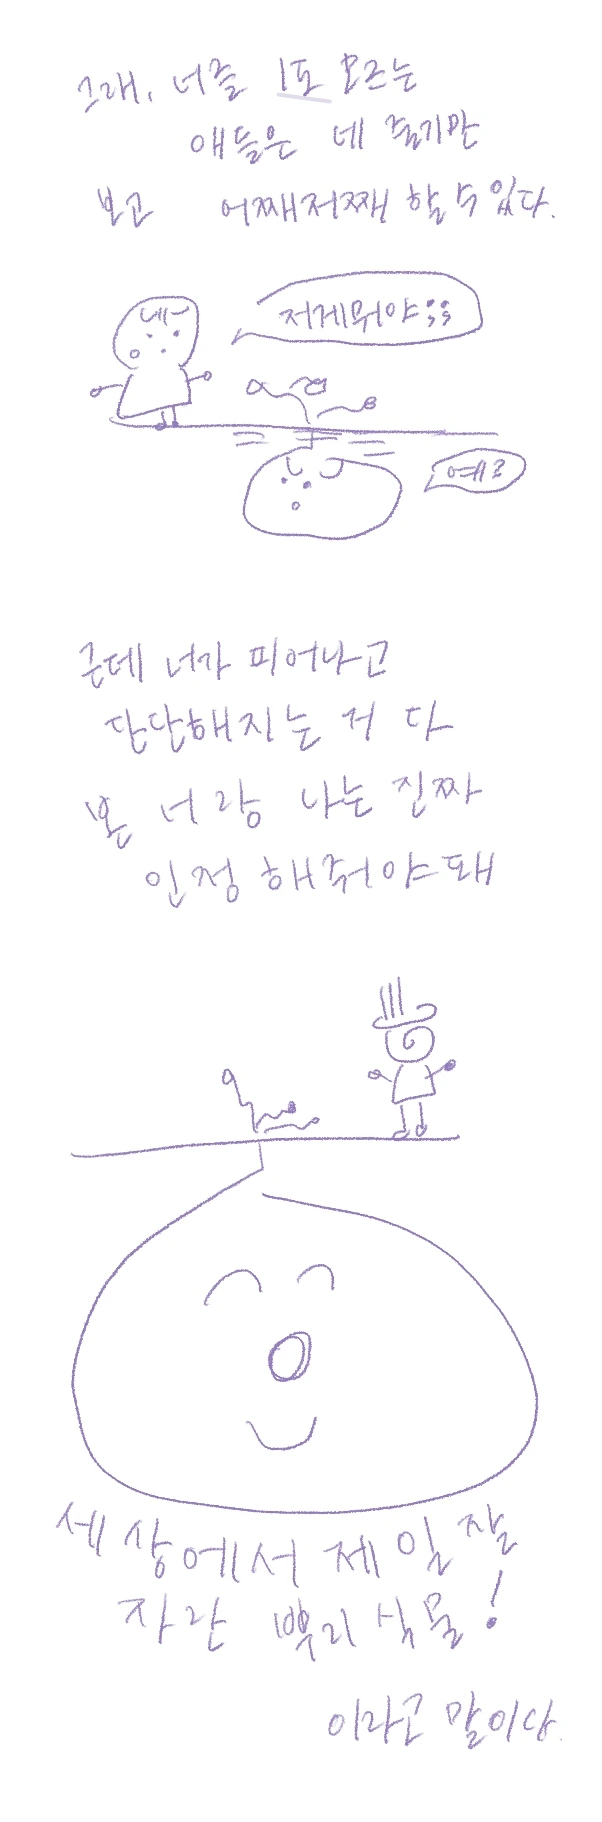 그래, 너를 1도 모르는
애들은 네 줄기만
보고 어쩌저쩌 할 수 있다.
네~
저게뭐야;;
예?
근데 너가 피어나고
단단해지는 거 다
본 너랑 나는 진짜
인정 해줘야돼
세상에서 제일 잘
자란 뿌리 식물!
이라고 말이다.